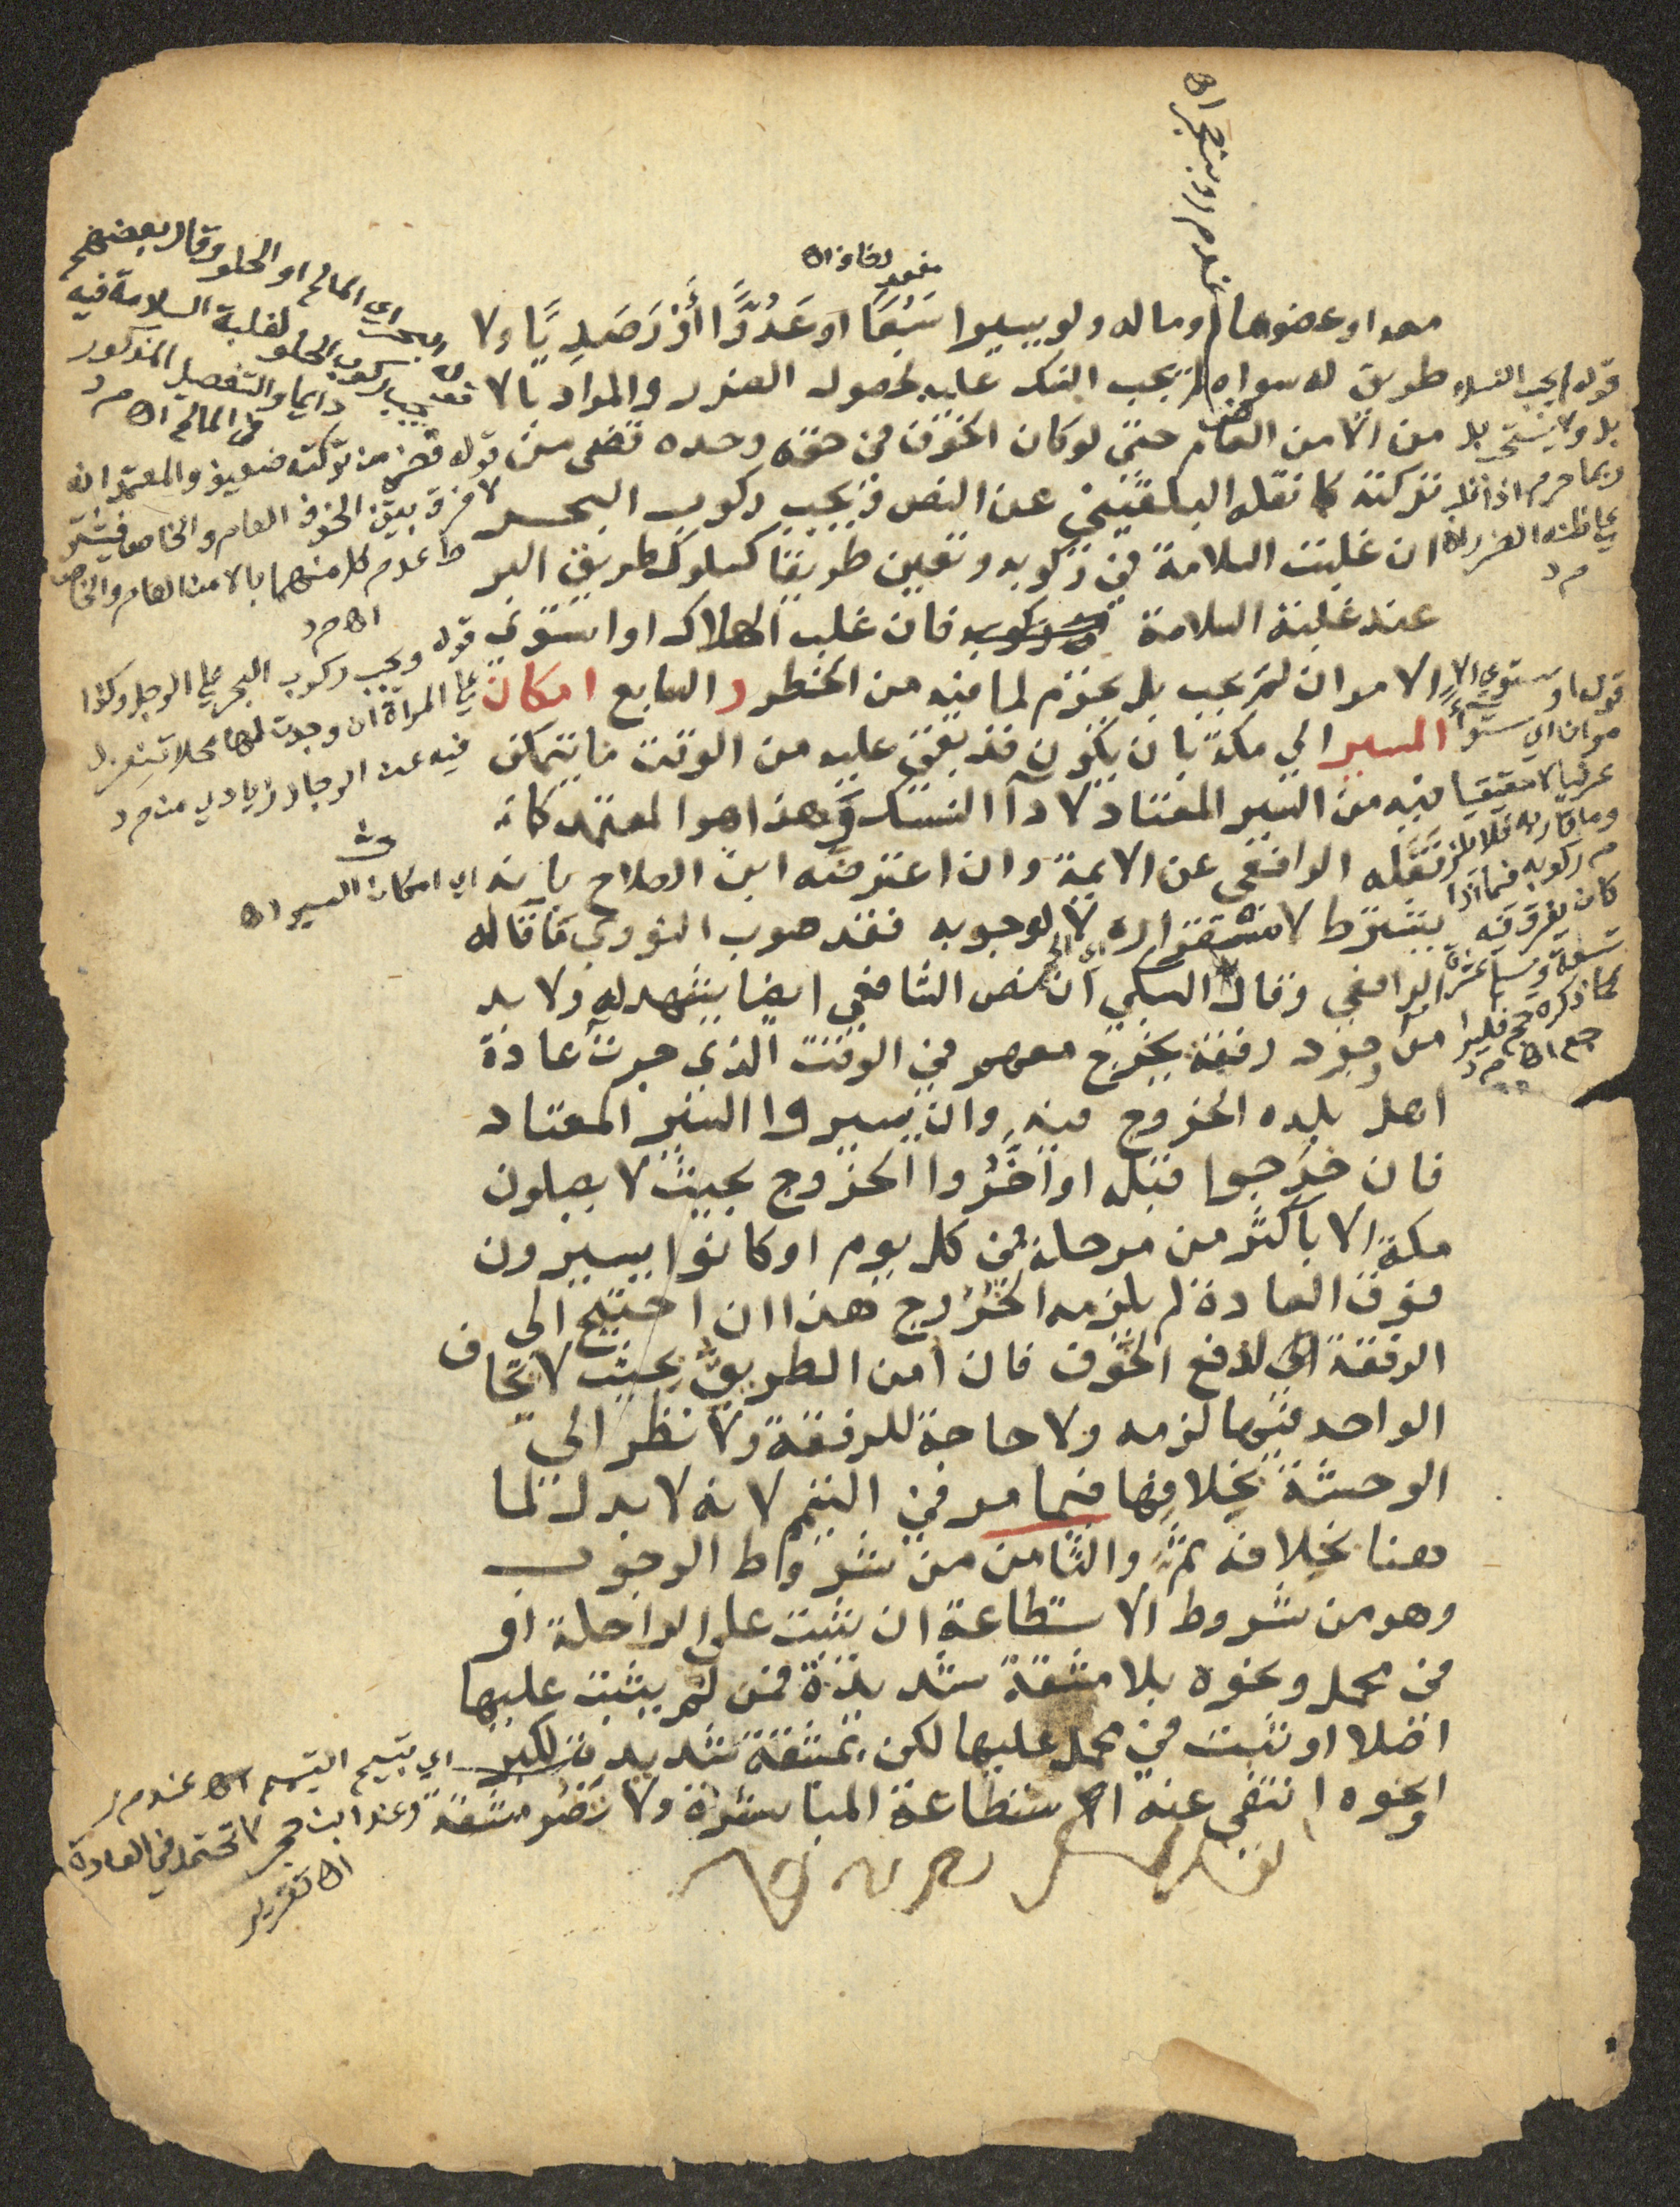 معه او عضوها او ماله ولو يسيرا سَبُعًا او عَدُوًّا أَوْ رَصَدِيًّا ولا
طريق له سواه لم يجب النسك عليه لحصول الضرر والمراد بالا
من الامن العام حتى لو كان الخوف في حقه وحده قضى من
تركته كما نقله البلقيني عن النص ويجب ركوب البحر
ان غلبت السلامة في ركوبه وتعين طريقا كسلوك طريق البر
عند غلبة السلامة فان غلب الهلاك او استوى
الامران لم يجب بل يحرم لما فيه من الخطر والسابع امكان
المسير الى مكة بان يكون قد بقى عليه من الوقت ما يتمكن
فيه من السير المعتاد لاداء النسك وهذا هو المعتمد كما
نقله الرافعي عن الايمة وان اعترضه ابن الصلاح بانه
يشترط لاستقراره لا لوجوبه فقد صوب النووي ما قاله
الرافعي وقال السبكي ان نص الشافعي ايضا يشهد له ولا بد
من وجود رفقة يخرج معهم في الوقت الذي جرت عادة
اهل بلده الخروج فيه وان يسيروا السير المعتاد
فان خرجوا قبله او اخَّروا الخروج بحيث لا يصلون
مكة الا باكثر من مرحلة في كل يوم او كانوا يسيرون
فوق العادة لم يلزمه الخروج هذا ان احتيج الى
الرفقة لدفع الخوف فان امن الطريق بحيث لا يخاف
الواحد فيها لزمه ولا حاجة للرفقة ولا نظر الى
الوحشة بخلافها فيما مر في التيمم لانه لا بدل لما
هنا بخلافه ثمة والثامن من شروط الوجوب
وهو من شروط الاستطاعة ان يثبت على الراحلة او
في محمل ونحوه بلا مشقة شديدة فمن لم يثبت عليها
اصلا او ثبت في محمل عليها لكن بمشقة شديدة لكبر
او نحوه انتفى عنه استطاعة المباشرة ولا تضر مشقة
اي المالح او الحلو وقال بعضهم
يجب ركوب الحلو لغلبة السلامة فيه
دايما والتفصيل المذكور
في المالح اه م د
قوله قضى من تركته ضعيف والمعتمد انه
لا فرق بين الخوف العام والخاص فيشتر
ط عدم كل منهما بالامن العام والخاص
اه م د
قوله ويجب ركوب البحر على الرجل وكذا
على المراة ان وجدت لها محلا تنعزل
فيه عن الرجال زيادي م د
اي امكان السير اه
قوله لم يجب النسك
بل ولا يستحب بل
ربما حرم اذا
على ظنه الضرر اه
م د
قوله او ستوي الا
مران اي
عرفيا لا حقيقيا
وما قاربه فلا يلز
م ركوبه فما اذا
كان يغرق فيه
تسعة ويسلم عشرة
كما ذكره
اه م د
وعند ابن حجر لا تحتمل في العادة
اه تقرير